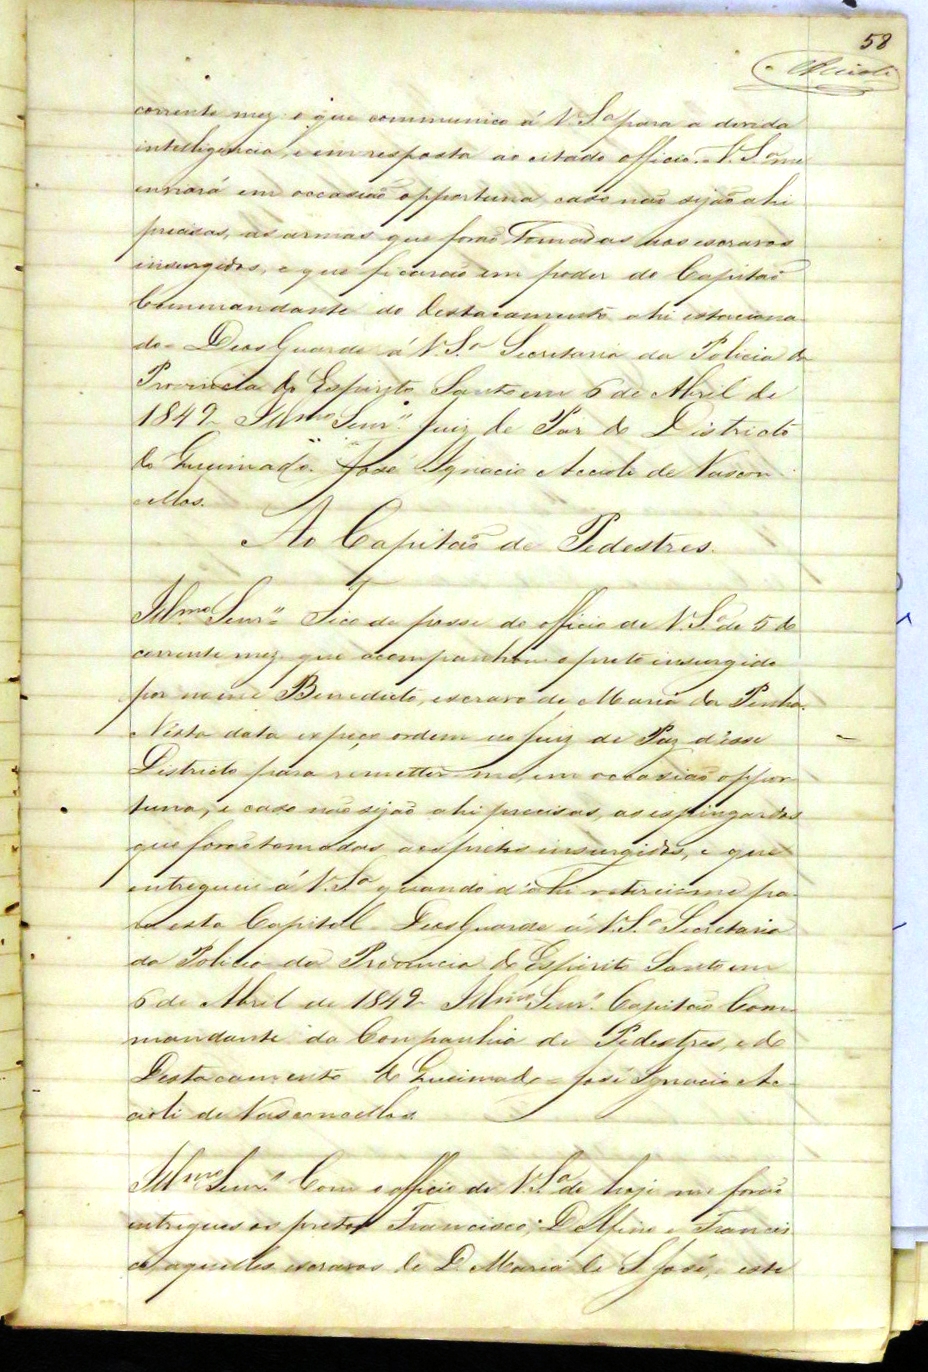 58
Accioli
corrente mez o que communico á V. S.ª para a devida
intelligencia, e em resposta ao citado officio. V. S.ª me
enviará em occasião opportuna caso não sejão ahi
precisas, as armas que forão tomadas aos escravos
insurgidos, e que ficarão em poder do Capitão
Commandante do Destacamento ahi estaciona-
do - Deos Guarde á V. S.ª Secretaria da Policia da
Provincia do Espirito Santo em 6 de Abril de
1849 - Illmo Senr. Juiz de Paz do Districto
do Queimado. José Ignacio Accioli de Vascon-
cellos.
Ao Capitão de Pedestres.
Illmo Senr. Fico de posse do officio de V. S.ª de 5 do
corrente mez que acompanhou o preto insurgido
por nome Benedicto, escravo de Maria da Penha.
Nésta data expeço ordem ao Juiz de Paz d'esse
Districto para remetter-me em occasião oppor-
tuna, e caso não sejão ahi precisas, as espingardas
que forão tomadas aos pretos insurgidos, e que
entreguei á V. S.ª quando d'ahi retirei-me pa-
ra esta Capital - Deos Guarde á V. S.ª Secretaria
da Policia da Provincia do Espirito Santo em
6 de Abril de 1849 - Illmo Senr. Capitão Com-
mandante da Companhia de Pedestres, e do
Destacamento do Queimado - José Ignacio Ac-
cioli de Vasconcellos
Illmo Senr. Com o officio de V. S.ª de hoje me forão
entregues os pretos Francisco, Delfino e Francis-
co, aquelles escravos de D. Maria de S. José, este